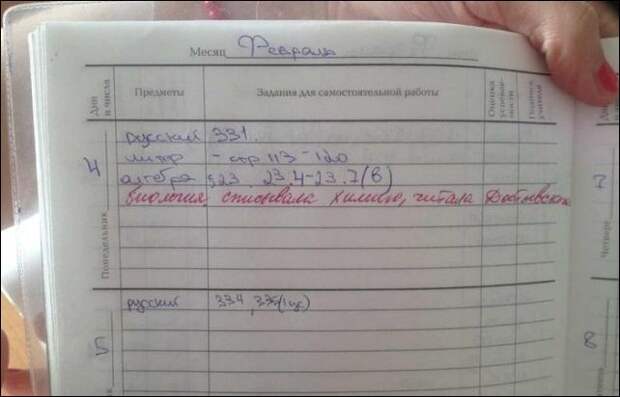 Месяц Февраль
Дни и числа
Предметы
Задания для самостоятельной работы
Оценка успеваемости
Подпись учителя
Понедельник
4
русский 331.
литер - стр 113-120
алгебра §23. 23.4-23.7(в)
биология списывала химию, читала Достоевского
5
русский 334, 335(1 уч)
Четверг
7
8